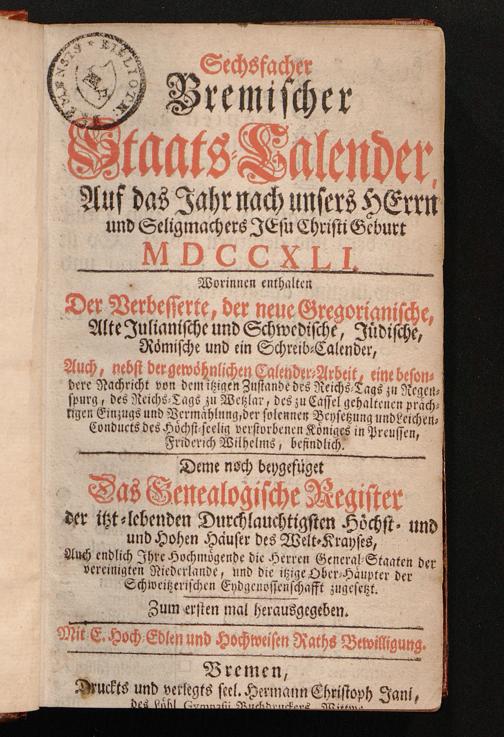 Sechsfacher
Bremischer
Staats-Calender,
Auf das Jahr nach unsers HErrn
und Seligmachers JEsu Christi Geburt
MDCCXLI.
Worinnen enthalten
Der Verbesserte, der neue Gregorianische,
Alte Julianische und Schwedische, Jüdische,
Römische und ein Schreib-Calender,
Auch, nebst der gewöhnlichen Calender-Arbeit, eine beson-
dere Nachricht von dem itzigen Zustande des Reichs-Tags zu Regen-
spurg, des Reichs-Tags zu Wetzlar, des zu Cassel gehaltenen präch-
tigen Einzugs und Vermählung, der solennen Beysetzung und Leichen-
Conducts des Höchst-seelig verstorbenen Königes in Preussen,
Friderich Wilhelms, befindlich.
Deme noch beygefüget
Das Genealogische Register
der itzt-lebenden Durchlauchtigsten Höchst- und
und Hohen Häuser des Welt-Krayses,
Auch endlich Ihre Hochmögende die Herren General-Staaten der
vereinigten Niederlande, und die itzige Ober-Häupter der
Schweitzerischen Eydgenossenschafft zugesetzt.
Zum ersten mal herausgegeben.
Mit E. Hoch-Edlen und Hochweisen Raths Bewilligung.
Bremen,
Druckts und verlegts seel. Hermann Christoph Jani,
des Löbl. Gymnasii Buchdruckers, Wittwe